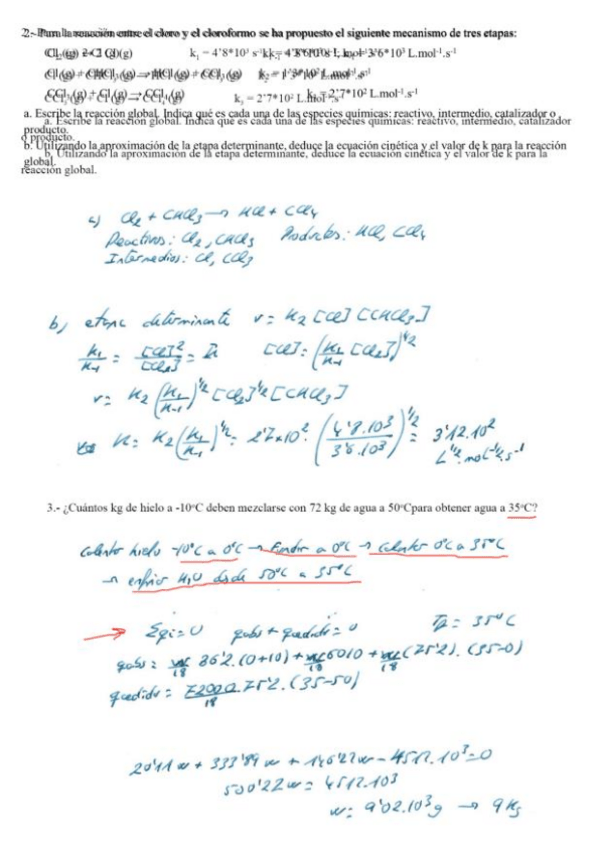 2.- Para la reacción entre el cloro y el cloroformo se ha propuesto el siguiente mecanismo de tres etapas:
Cl₂(g) 2 Cl(g) k₁ = 4'8*10³ s⁻¹ k₋₁ = 3'6*10³ L.mol⁻¹.s⁻¹
Cl(g) + CHCl₃(g) → HCl(g) + CCl₃(g) L.mol⁻¹.s⁻¹
CCl₃(g) + Cl(g) → CCl₄(g) k₃ = 2'7*10² L.mol⁻¹.s⁻¹
a. Escribe la reacción global. Indica qué es cada una de las especies químicas: reactivo, intermedio, catalizador o
producto.
b. Utilizando la aproximación de la etapa determinante, deduce la ecuación cinética y el valor de k para la reacción
global.
a) Cl₂ + CHCl₃ → HCl + CCl₄
Reactivos: Cl₂, CHCl₃ Productos: HCl, CCl₄
Intermedios: Cl, CCl₃
b) etapa determinante v = K₂ [Cl] [CHCl₃]
K₁/K₋₁ = [Cl]²/[Cl₂] = [Cl] = (K₁/K₋₁ [Cl₂])^1/2
v = K₂ (K₁/K₋₁)^1/2 [Cl₂]^1/2 [CHCl₃]
K = K₂ (K₁/K₋₁)^1/2 = 2'7*10² · (4'8.10³/3'6.10³)^1/2 = 3'12.10²
L^1/2 . mol^-1/2 . s⁻¹
3.- ¿Cuántos kg de hielo a -10ºC deben mezclarse con 72 kg de agua a 50ºCpara obtener agua a 35ºC?
calentar hielo -10ºC a 0ºC → Fundir a 0ºC → calentar 0ºC a 35ºC
→ enfriar H₂O desde 50ºC a 35ºC
→ Σqi = 0 qabs + qcedido = 0 = 35ºC
qabs = w/18 36'2.(0+10) + w/18 6010 + w/18 (75'2).(35-0)
qcedido = 72000/18 . 75'2 . (35-50)
20'11 w + 333'89 w + 146'22 w - 4512.10³ = 0
500'22 w = 4512.10³
w = 9'02.10³ g → 9 Kg